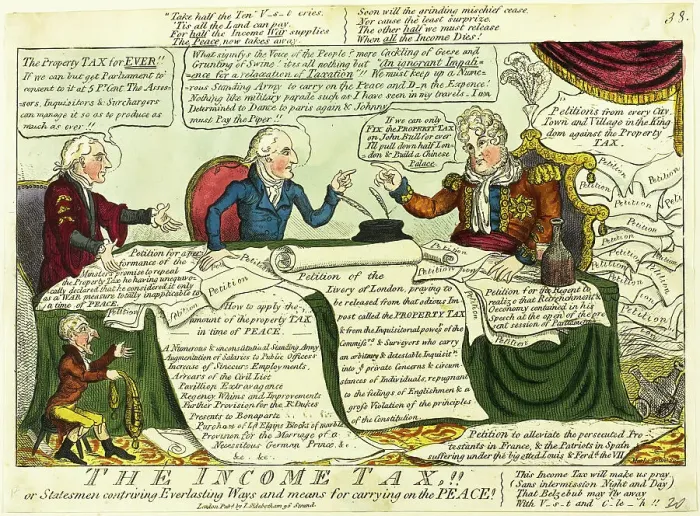 "Take half the Ten" V_s_t cries,
'Tis all the Land can pay.
For half the Income War supplies
The Peace now takes away.
Soon will the grinding mischief cease,
Nor cause the least surprize.
The other half we must release
When all the Income Dies!
38.
The Property TAX for EVER!!
If we can but get Parliament to
consent to it at 5 Pr Cent The Asses-
sors, Inquisitors & Surchargers
can manage it so as to produce as
much as ever!!
What signifys the Voice of the People? mere Cackling of Geese and
Grunting of Swine! its all nothing but "An ignorant Impati-
ence for a relaxation of Taxation"!! We must keep up a Nume-
rous Standing Army to carry on the Peace and D_n the Expence!
Nothing like military parade such as I have seen in my travels. I am
Determined to Dance to paris again & Johnny
must Pay the Piper!!
If we can only
FIX the PROPERTY TAX
on John Bull for ever
I'll pull down half Lon-
don & Build a Chinese
Palace.
Petitions from every City,
Town and Village in the King
dom against the Property
TAX.
Petition
Petition
Petition
Petition
Petition
Petition
Petition
Petition
Petition
Petition
Petition for a per-
formance of the
Minister's promise to repeal
the Property Tax he having unequivo-
cally declared that he considered it only
as a WAR measure totally inapplicable to
a time of PEACE.
Petition
Petition
Petition
How to apply the
amount of the property TAX
in time of PEACE.
A Numerous & unconstitutional Standing Army
Augmentation of Salaries to Public Officers
Increase of Sinecure Employments.
Arrears of the Civil List
Pavillion Extravagance
Regency Whims and Improvements
Further Provision for the R. Dukes
Presents to Bonaparte
Purchase of Ld Elgins Blocks of marble
Provision for the Marriage of a
Necessitous German Prince, &c.
&c. &c.
Petition of the
Livery of London, praying to
be released from that odious Im
post called the PROPERTY TAX
& from the Inquisitorial powers of the
Commissrs & Surveyors who carry
an arbitrary & detestable Inquisitn
into ye private Concerns & circum-
stances of Individuals, repugnant
to the feelings of Englishmen & a
gross Violation of the principles
of the Constitution.
Petition
Petition
Petition for the Regent to
realize that Retrenchment &
Oeconomy contained in his
Speech at the open of the pre
sent session of Parliament
Petition
Petition to alleviate the persecuted Pro
testants in France, & the Patriots in Spain
suffering under the bigotted Louis & Ferdd the VII.
THE INCOME TAX,!!
or Statesmen contriving Everlasting Ways and means for carrying on the PEACE!
London Pubd by J. Sidebetham 96 Strand.
This Income Tax will make us pray,
(Sans intermission Night and Day)
That Belzebub may fly away
With V_s_t and C_le_h!!
20